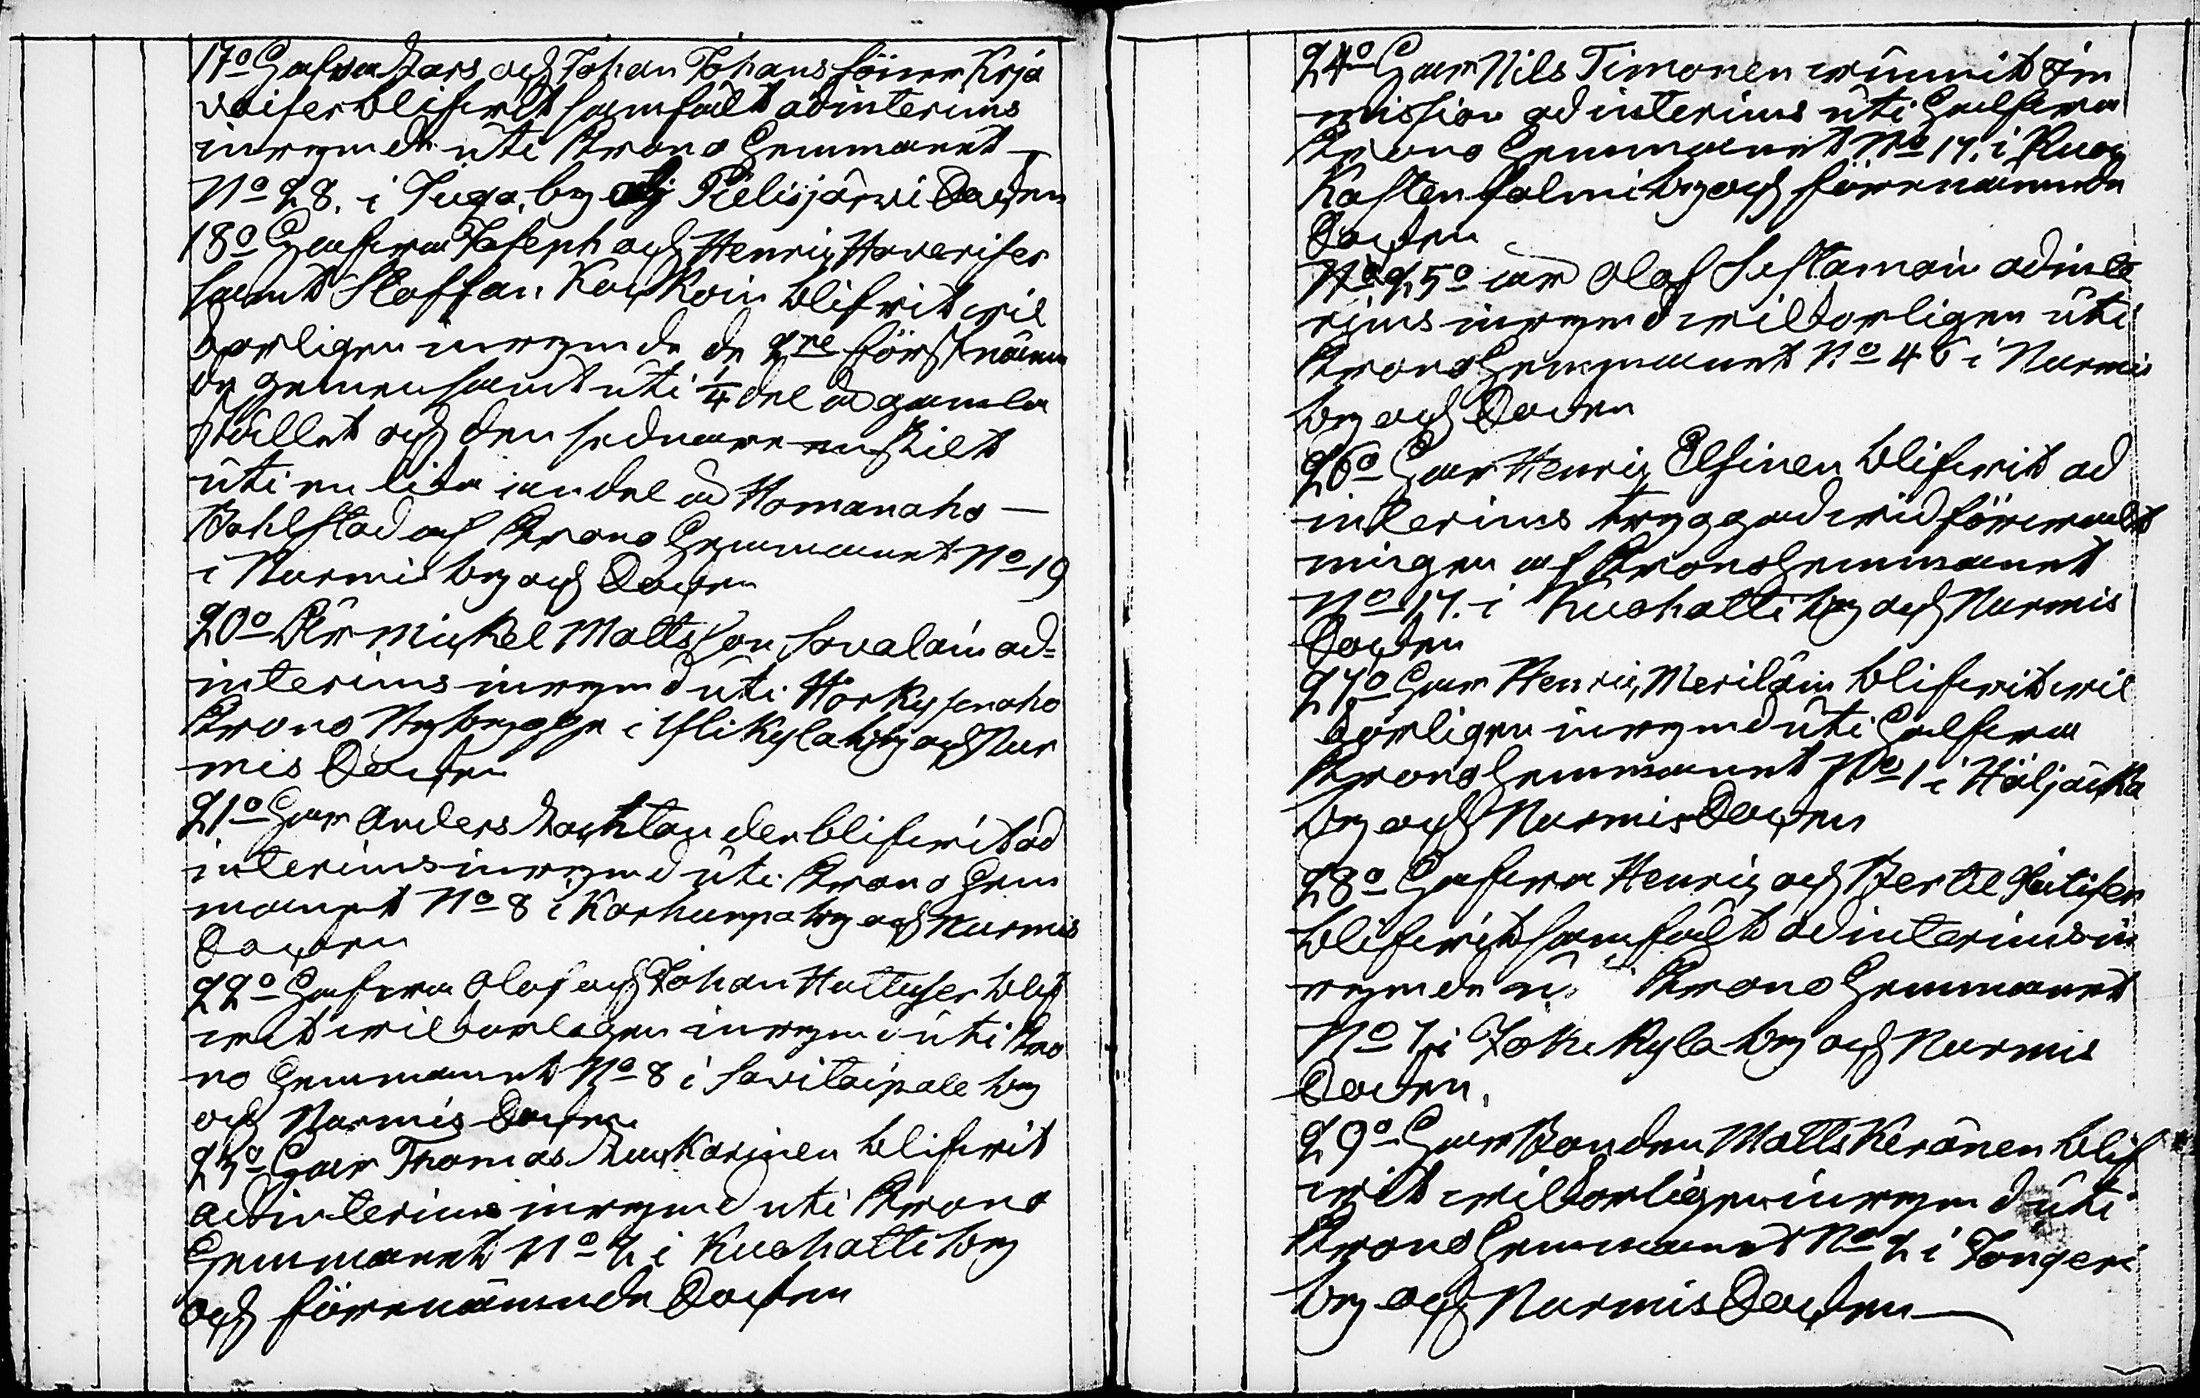 17º Hafwa Lars och Johan Johans söner Krjä
waiser blifwit samfält ad interims
inrymde uti Krono Hemmanet
Nº 28. i Juga by och Pielisjärwi Socken
18º Hafwa Joseph och Henric Haveriser
samt Staffan Kackoin blifwit wil
korligen inrymde de 2ne förstnämn
de gemensamt uti 1/4 del ad gamla
stället och den sednare enskilt
uti en lika andel ad Homanaho
Bohlstad af Krono Hemmanet Nº 19
i Nurmis by och Socken
20º Är Mickel Mattsson Savalain ad=
interims inrymd uti Horkysenaho
Krono Nybygge i Ylikyla by och Nur
mis Socken
21º Har Anders Lacktander blifwit ad
interims inrymd uti Krono Hem
manet Nº 8 i Karhunpa by och Nurmis
Socken
22º Hafwa Olof och Johan Huttuser blif
wit wilkorligen inrymd uti Kro
no Hemmanet Nº 8 i Savitaipale by
och Nurmis Socken
23º Har Thomas Luckarinen blifwit
ad interims inrymd uti Krono
Hemmanet Nº 2 i Kuohatti by
och förenämnde Socken
24º Har Nils Timonen wunnit Im
mission ad interims uti Halfwa
Krono Hemmanet Nº 17. i Ruog
Kastensalmi by och förenämnde
Socken
Nº 25º är Olof Sistamain ad inte
rims inrymd wilkorligen uti
Krono Hemmanet Nº 46 i Nurmis
by och Socken
26º Har Henric Elfinen blifwit ad
interims tryggad wid förwalt
ningen af Krono Hemmanet
Nº 17. i Kuohatti by och Nurmis
Socken
27º Har Henric Meriläin blifwit wil
korligen inrymd uti Halfwa
Krono Hemmanet Nº 1 i Höljäckä
by och Nurmis Socken
28º Hafwa Henric och Bertil Piitiser
blifwit samfält ad interims in
rymde uti Krono Hemmanet
Nº 7 i Jokikyla by och Nurmis
Socken.
29º Har Bonden Matts Keränen blif
wit wilkorligen inrymd uti
Krono Hemmanet Nº 2 i Jongeri
by och Nurmis Socken